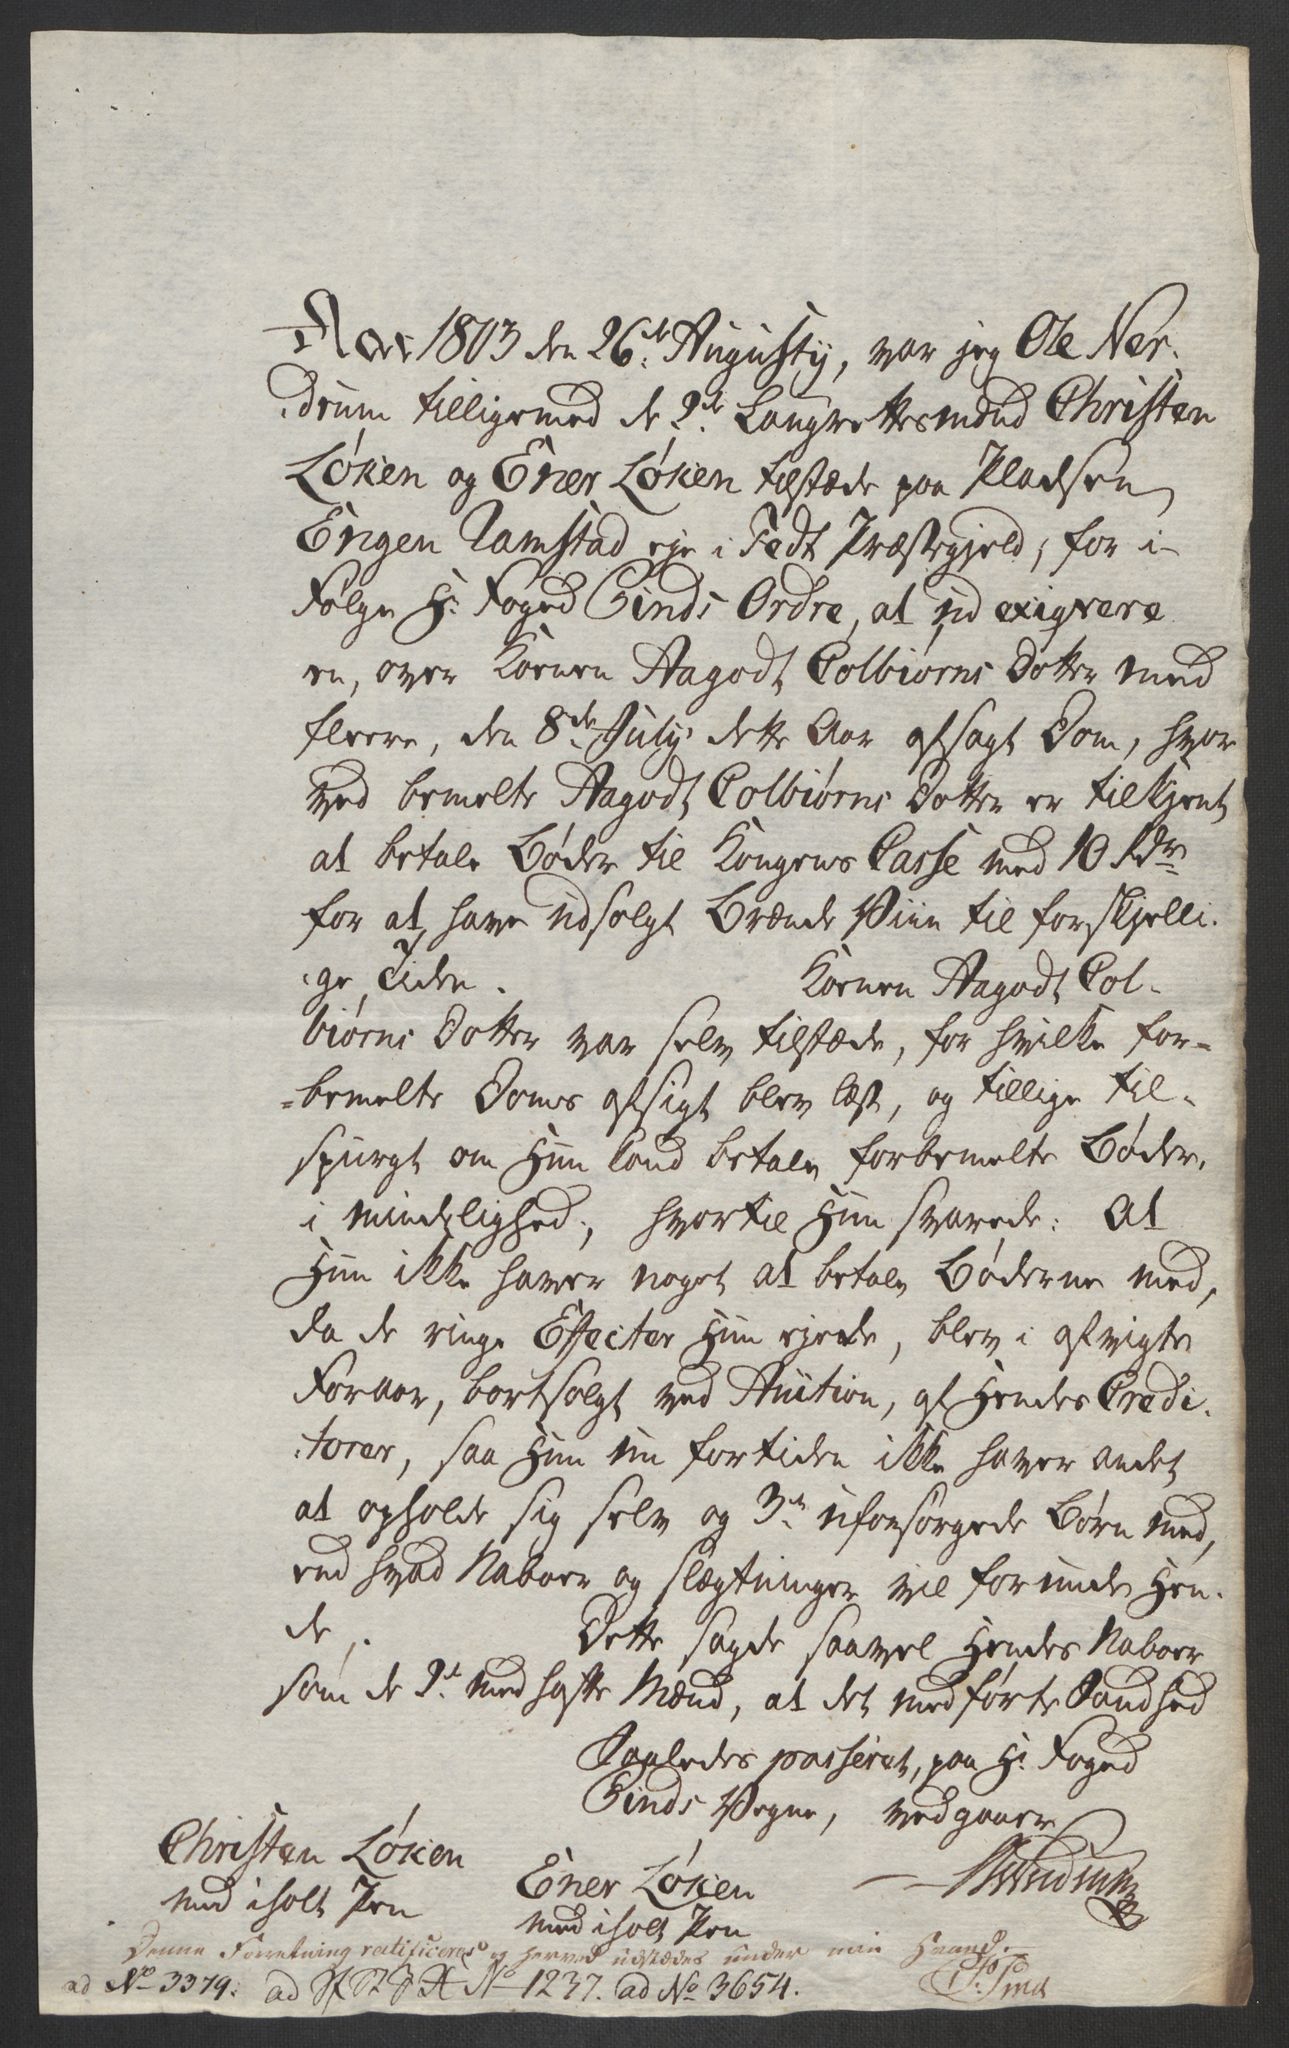 Aar 1803 den 26de Augusty, var jeg Ole Ner-
drum tilligemed de 2de Laugrettesmænd Christen
Løken og Ener Løken tilstæde paa Pladsen
Engen Ramstad eje i Fedt Præstegjeld, for i
Følge Hr Foged Sinds Ordre, at udexiqvere
en, over Konen Aagodt Colbiørns Dotter med
fleere, den 8de July dette Aar afsagt Dom, hvor
ved bemelte Aagodt Colbiørns Dotter er tilkjent
at betale Bøder til Kongens Casse med 10 Rdr
for at have udsolgt Brænde Viin til forskjelli-
ge Tider. Konen Aagodt Col-
biørns Dotter var selv tilstæde, for hvilke for-
bemelte Doms afsigt blev læst, og tillige til-
spurgt om Hun kand betale forbemelte Bøder,
i mindelighed, hvortil Hun svarede: At
Hun ikke haver noget at betale Bøderne med,
da de ringe Effecter Hun ejede, blev i afvigte
Foraar, bortsolgt ved Auction, af Hendes Credi-
torer, saa Hun nu fortiden ikke haver andet
at opholde sig selv og 3de uforsørgede Børn med,
end hvad Naboer og slægtninger vil forunde Hen-
de. Dette sagde saavel Hendes Naboer
som de 2de medhafte Mænd, at det medførte Sandhed
Saaledes passeret, paa Hr Foged
Sinds Vegne, vedgaaer
Christen Løken
med iholt Pen
Ener Løken
med iholt Pen
Nerdrum
Denne Forretning ratificeres og herved udstædes under min Haand.
Sind
ad No 3379: ad No 1237. ad No 3654.